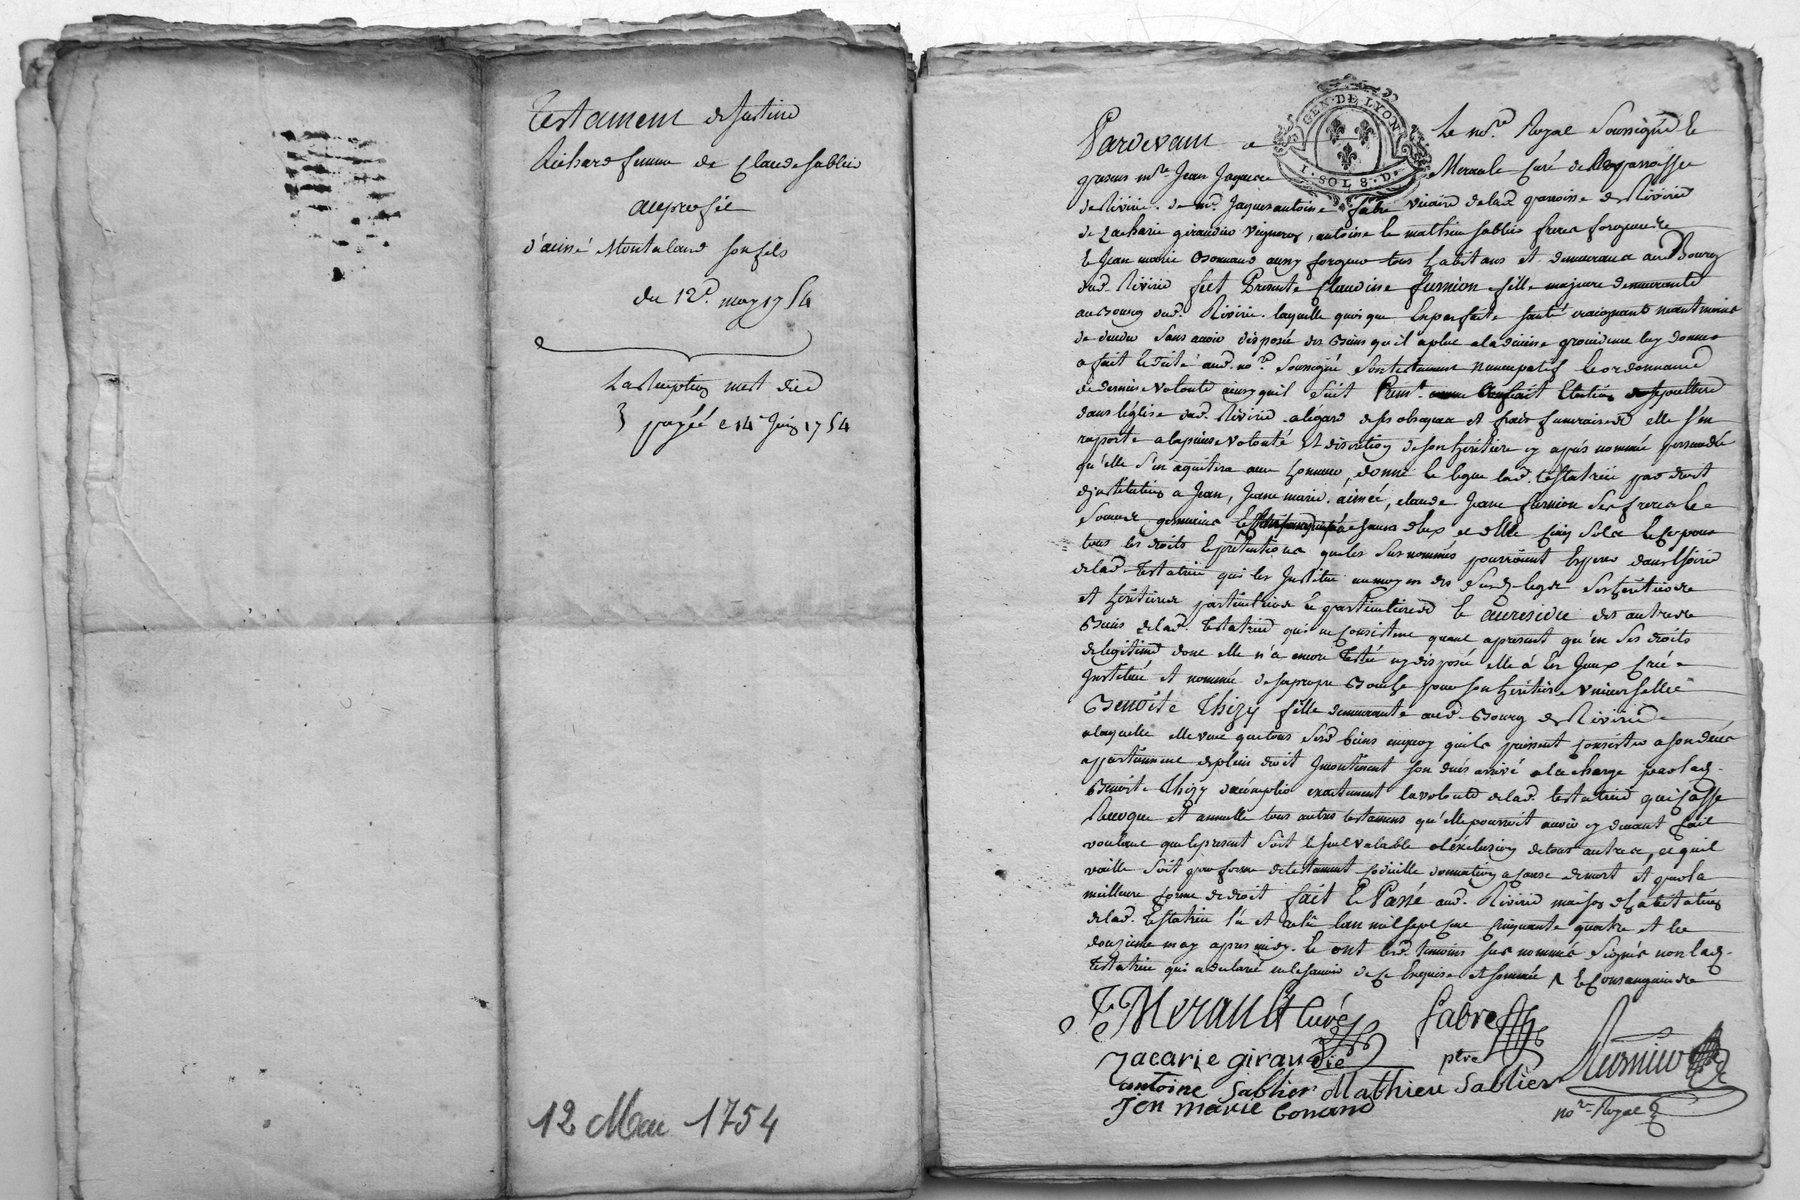 Testament de Justine
Richard femme de Claude Sablier
au profit
d'aimé Montaland son fils
du 12e. may 1754
payée le 14e Juin 1754
12 Mai 1754
GEN. DE LYON
1. SOL 8. D.
Pardevant le nore. Royal soussigné &
presens mre Jean Jaques Merault Curé de parroisse
de Rivirie. de mr. Jaques antoine fabre vicaire de lad. parroisse de Rivirie
de Zacharie giraudier vigneron, antoine & mathieu sablier freres forgeurs
& Jean marie Bonnand aussy forgeur tous habitans et demeurans aud Bourg
dud. Rivirie fut Presente Claudine furnion fille majeure demeurante
au Bourg dud. Rivirie. laquelle quoique en parfaite santé craignant neantmoins
de deceder sans avoir disposé des Biens qu'il a plu a la divine providence luy donner
a fait & dicté aud. nore. soussigné son testament nuncupatif & ordonnance
de derniere volonté ainsy qu'il suit Premt. fait Election de sepulture
dans l'église dud. Rivirie a legard de ses obseques et frais funeraires elle s'en
raporte a la pieuse volonté et discretion de son heritiere cy après nommée persuadée
qu'elle s'en aquitera avec honneur, donne & legue lad. testatrice par droit
d'institution a Jean, Jeane marie, aimée, claude Jeane furnion ses freres &
soeurs germains a chacun d'eux et d'elle cinq sols & ce pour
tous les droits & pretentions que les susnommés pourroient esperer dans l'hoirie
de lad. testatrice qui les Institue au moyen des susd. legs ses heritiers
et heritieres particuliers & particulieres & au residu des autres
Biens de lad. testatrice qui ne consistent quant a present qu'en ses droits
de legitime dont elle n'a encore testé ny disposé elle a &
Institué et nommé de sa propre Bouche pour son heritiere universelle
Benoite Thizy fille demeurante aud. Bourg de Rivirie
a laquelle elle veut que tous sesd. biens en quoy qu'ils puissent consister a son decès
appartiennent de plein droit Incontinent son decès arrivé a la charge par lad.
Benoite Thizy d'acomplir exactement la volonté de lad. testatrice qui casse
Revoque et annulle tous autres testamens qu'elle pourroit avoir cy devant fait
voulant que le present soit le seul valable a l'exclusion de tous autres, et qu'il
vaille soit par forme de testament codicille donnation a cause de mort et par la
meilleure forme de droit fait & Passé aud. Rivirie maison d'habitation
de lad. testatrice lu et relu lan mil sept cent cinquante quatre et le
douzieme may apres midy. & ont lesd. temoins sus nommés signés non lad.
testatrice qui a declaré ne le savoir de ce Enquise et sommée & consanguins
Merault Curé fabre
ptre
Zacarie giraudie
antoine Sablier Mathieu Sablier
Jen marie bonand
nore Royal